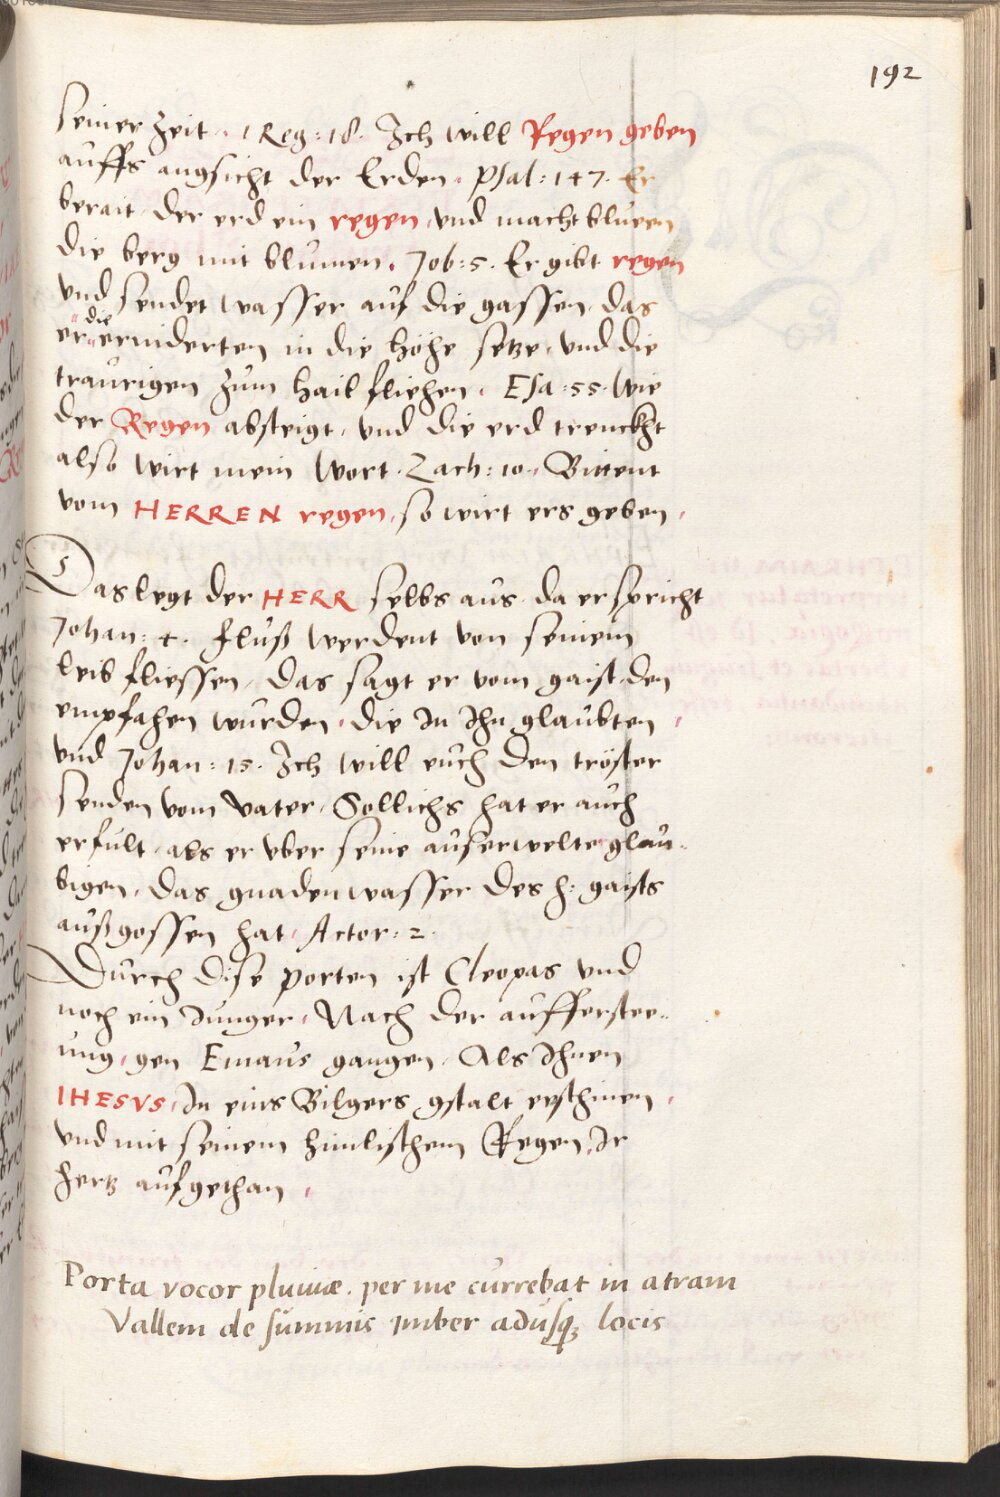 192
seiner Zeit. 1 Reg: 18. Ich will Regen geben
auffs angsicht der Erden. Psal: 147. Er
berait der erd ein regen, und macht blueen
die berg mit blumen. Job: 5. Er gibt regen
und sendet wasser auf die gassen, das
er die ernidertten in die höhe setze, und die
traurigen zum hail fliehen. Esa: 55. Wie
der Regen absteigt, und die erd trenckht
also wirt mein Wort. Zach: 10. Bittent
vom HERREN regen, so wirt ers geben,
Das legt der HERR selbs aus, da er spricht
Johan: 4. Fluß werdent von seinem
leib fliessen, das sagt er vom gaist, den
empfahen wurden, die In Ihn glaubten,
und Johan: 15. Ich will euch den tröster
senden vom Vater, Sollichs hat er auch
erfült, als er uber seine auserwelte glau-
bigen, das gnadenwasser des h: gaists
außgossen hat, Actor: 2.
Durch dise porten ist Cleopas und
noch ein Iunger, Nach der aufferstee-
ung, gen Emaus gangen, Als Ihnen
IHESVS, In eins Bilgers gstalt erschinen,
und mit seinem himlischem Regen, Ir
hertz aufgethan,
Porta vocor pluuiæ. per me currebat in atram
Vallem de summis imber adusq; locis